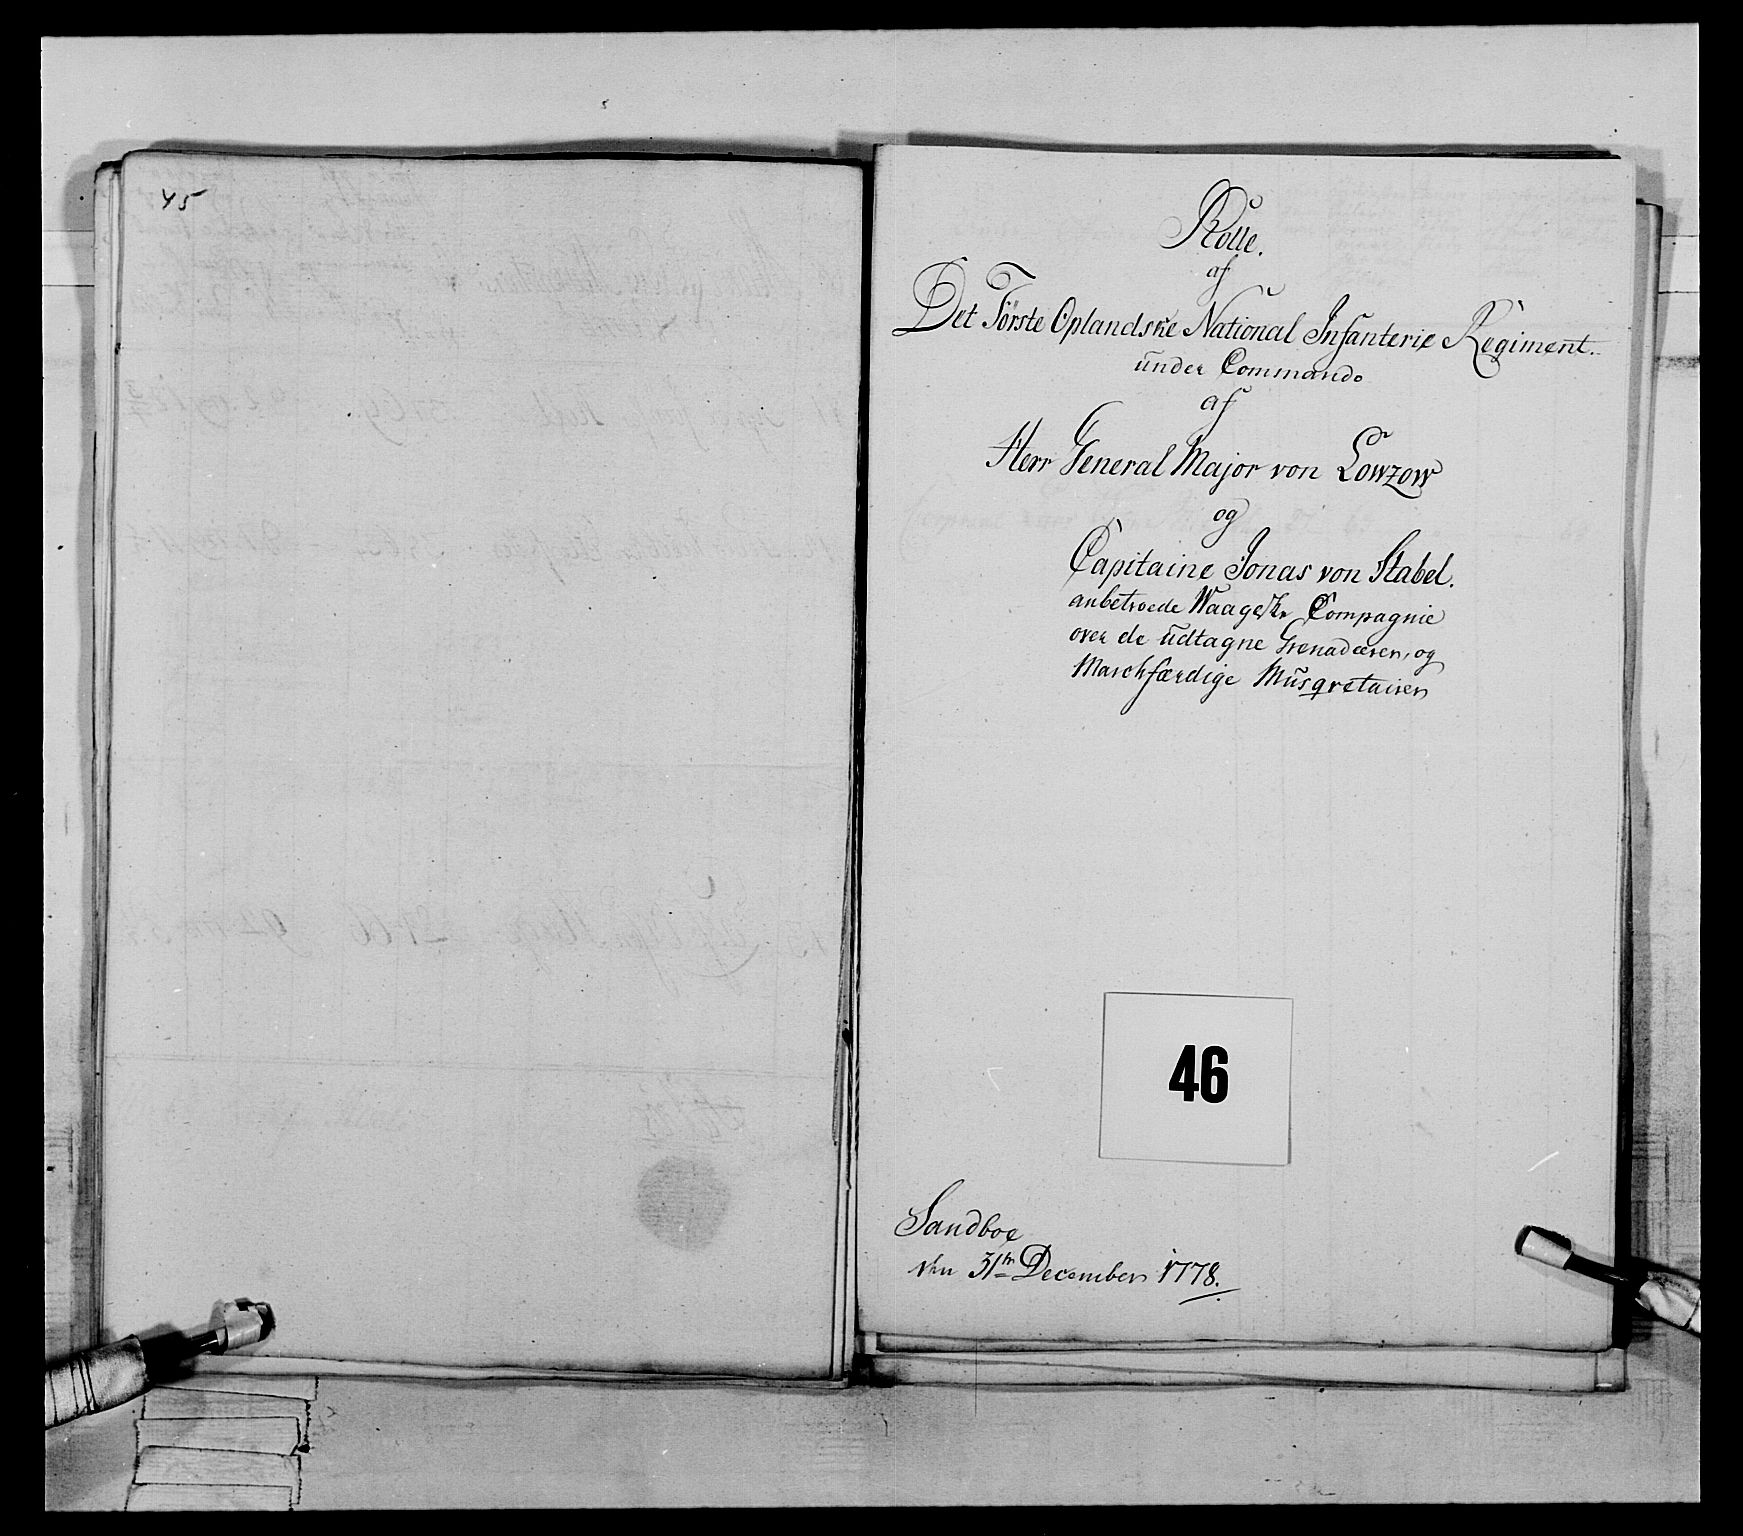 45
Rolle.
af
Det Förste Oplandske National Infanterie Regiment.
under Commando
af
Herr General Major von Lowzow
og
Capitaine Jonas von Stabel.
anbetroede Waageske Compagnie
over de udtagne Grenaderer, og
Marchfærdige Musqvetairer
46
Sandboe
den 31th December 1778.